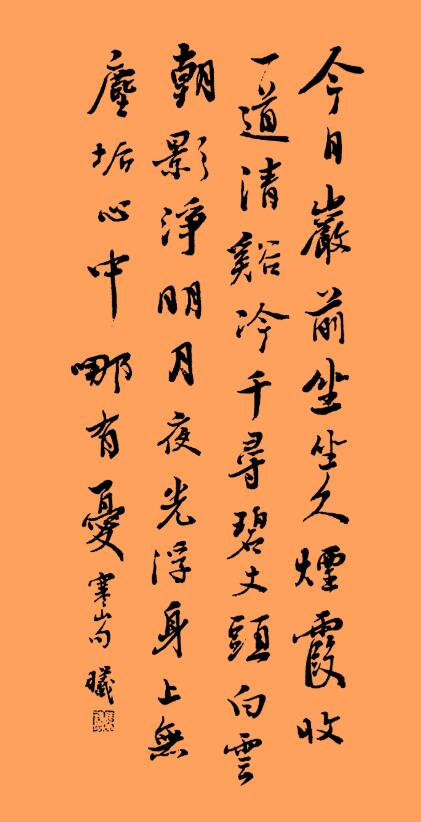 今日巖前坐坐久煙霞收
一道清谿冷千尋碧丈頭白雲
朝影淨明月夜光浮身上無
塵垢心中哪有憂寒山句曦